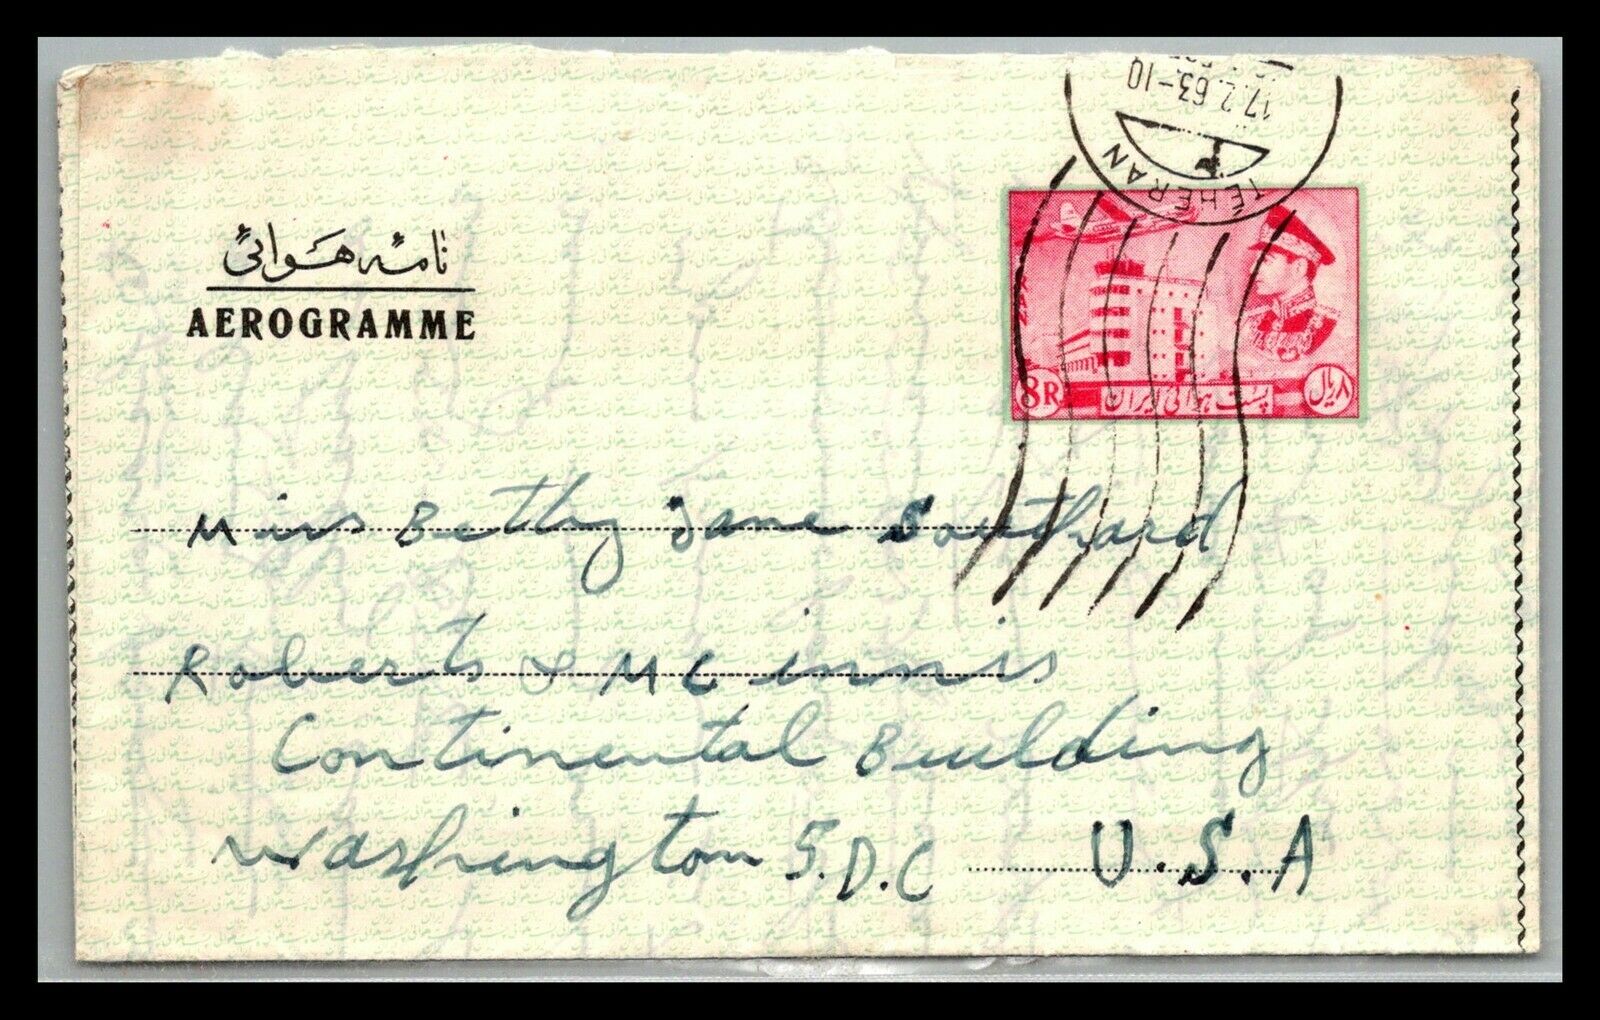 17.2.63-10
TÉHÉRAN
نامه هوائی
AEROGRAMME
IRAN
8R
پست هوائی ایران
۸ ریال
Miss Betty Jane Southard
Roberts & Mc innis
Continental Building
Washington 5. D. C
U. S. A